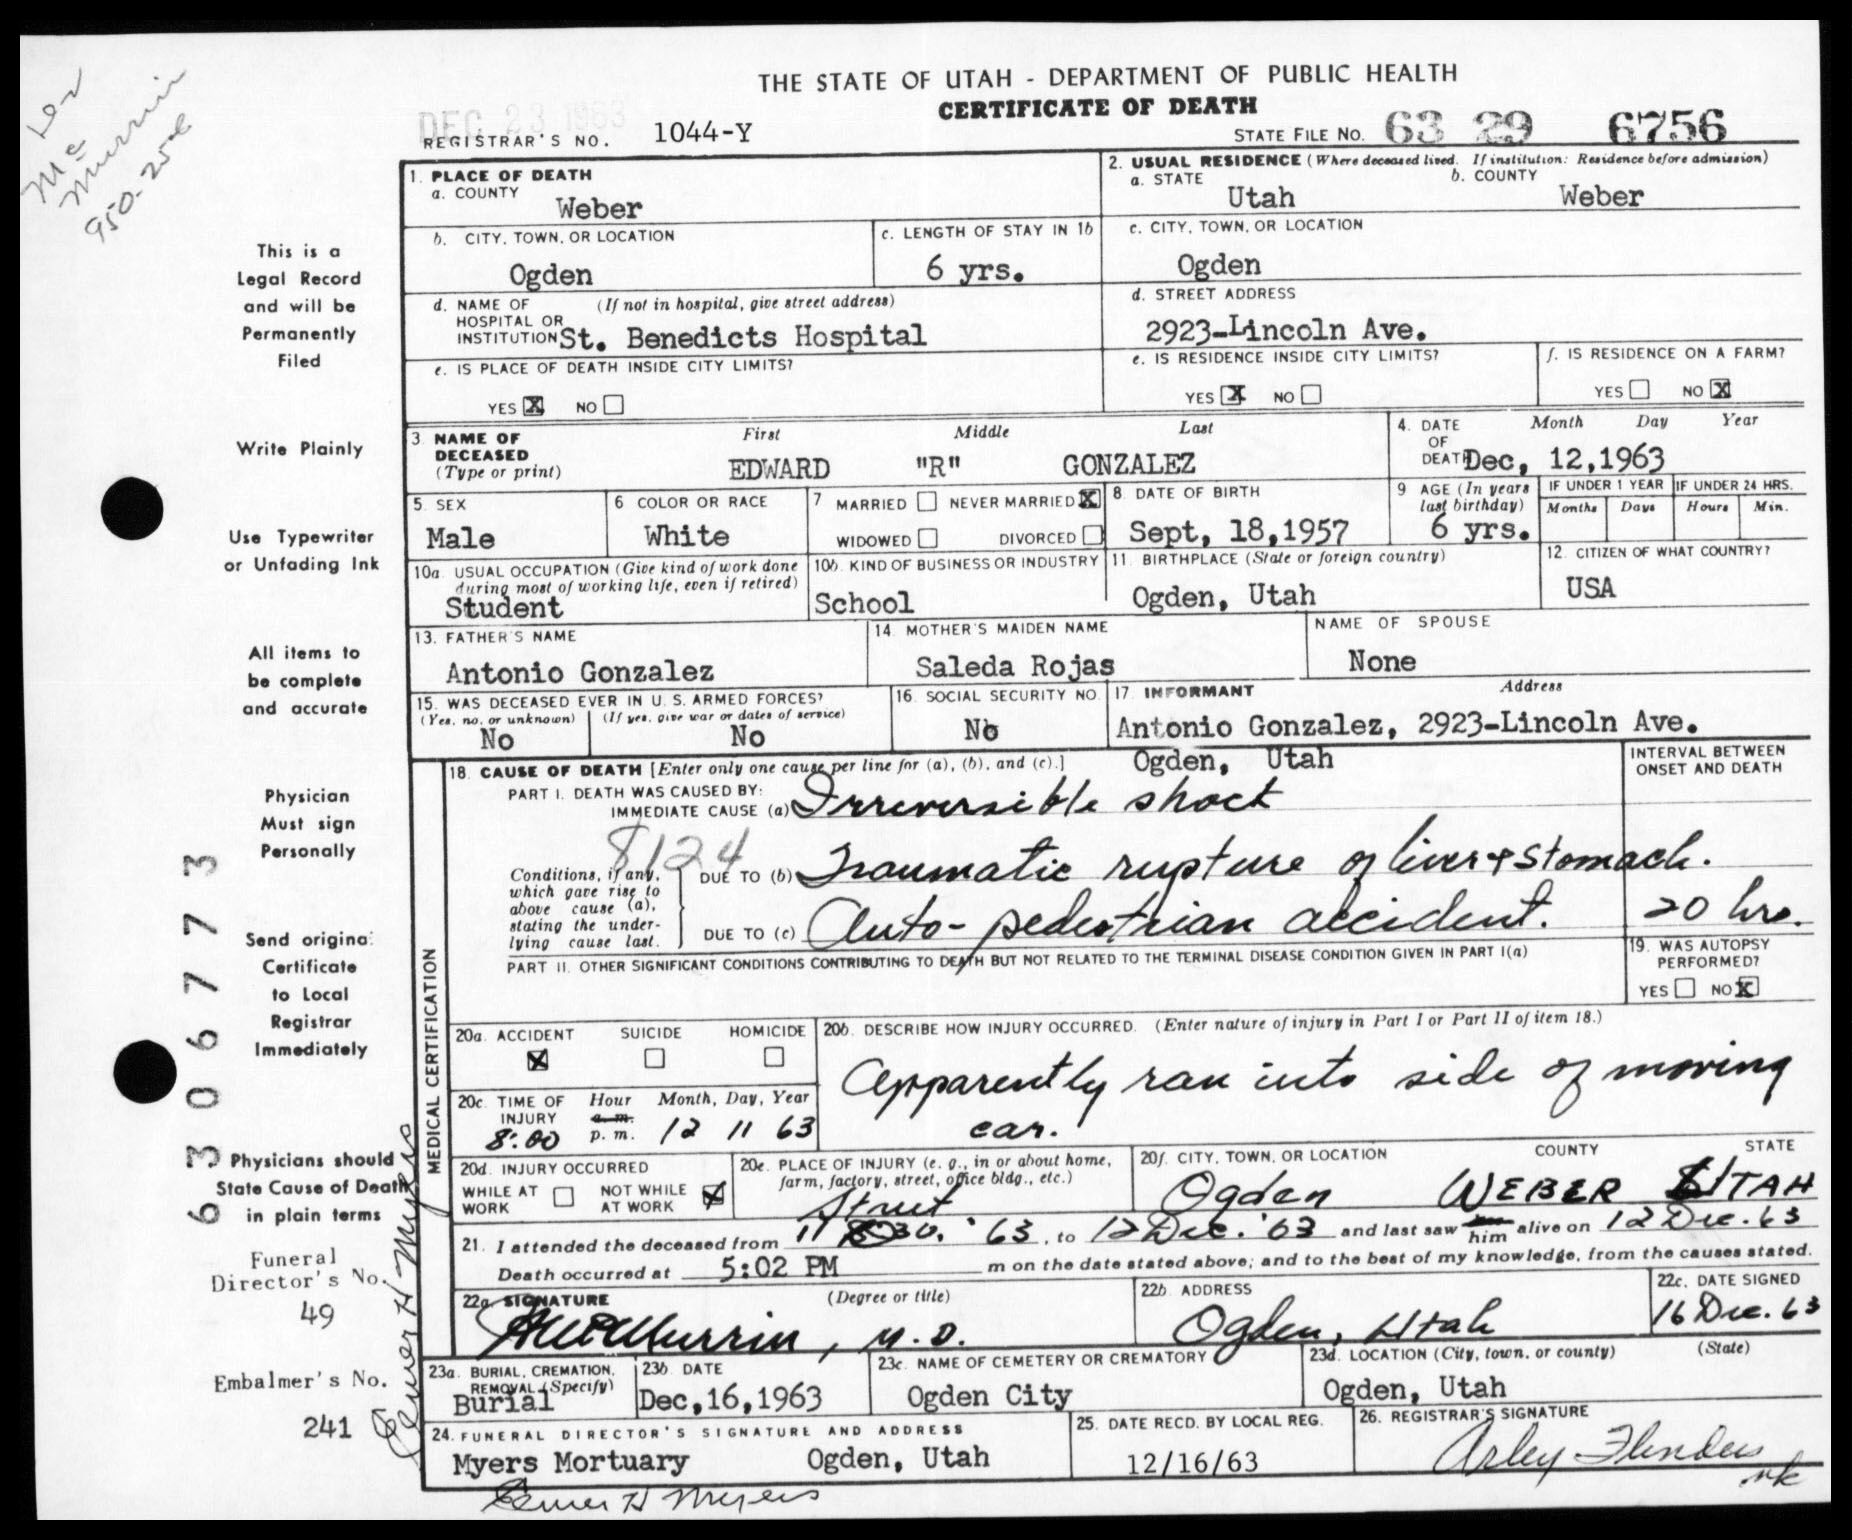 Lex
Mc
Murrin
THE STATE OF UTAH - DEPARTMENT OF PUBLIC HEALTH
CERTIFICATE OF DEATH
DEC 23 1963
REGISTRAR'S NO. 1044-Y
STATE FILE NO. 63 29 6756
1. PLACE OF DEATH
a. COUNTY
Weber
2. USUAL RESIDENCE (Where deceased lived. If institution: Residence before admission)
a. STATE
Utah
b. COUNTY
Weber
b. CITY, TOWN, OR LOCATION
Ogden
c. LENGTH OF STAY IN 1b
6 yrs.
c. CITY, TOWN, OR LOCATION
Ogden
d. NAME OF (If not in hospital, give street address)
HOSPITAL OR
INSTITUTION St. Benedicts Hospital
d. STREET ADDRESS
2923-Lincoln Ave.
e. IS PLACE OF DEATH INSIDE CITY LIMITS?
YES X NO
e. IS RESIDENCE INSIDE CITY LIMITS?
YES X NO
f. IS RESIDENCE ON A FARM?
YES NO X
3. NAME OF
DECEASED
(Type or print)
First Middle Last
EDWARD "R" GONZALEZ
4. DATE
OF
DEATH
Month Day Year
Dec, 12,1963
5. SEX
Male
6 COLOR OR RACE
White
7 MARRIED NEVER MARRIED X
WIDOWED DIVORCED
8. DATE OF BIRTH
Sept, 18,1957
9 AGE (In years
last birthday)
6 yrs.
IF UNDER 1 YEAR
Months Days
IF UNDER 24 HRS.
Hours Min.
10a. USUAL OCCUPATION (Give kind of work done
during most of working life, even if retired)
Student
10b. KIND OF BUSINESS OR INDUSTRY
School
11. BIRTHPLACE (State or foreign country)
Ogden, Utah
12. CITIZEN OF WHAT COUNTRY?
USA
13. FATHER'S NAME
Antonio Gonzalez
14. MOTHER'S MAIDEN NAME
Saleda Rojas
NAME OF SPOUSE
None
15. WAS DECEASED EVER IN U. S. ARMED FORCES?
(Yes, no, or unknown) (If yes, give war or dates of service)
No No
16. SOCIAL SECURITY NO.
No
17. INFORMANT Address
Antonio Gonzalez, 2923-Lincoln Ave.
Ogden, Utah
MEDICAL CERTIFICATION
18. CAUSE OF DEATH [Enter only one cause per line for (a), (b), and (c).]
INTERVAL BETWEEN
ONSET AND DEATH
PART I. DEATH WAS CAUSED BY:
IMMEDIATE CAUSE (a) Irreversible shock
8124
Conditions, if any,
which gave rise to
above cause (a),
stating the under-
lying cause last.
DUE TO (b) Traumatic rupture of liver & stomach.
DUE TO (c) Auto-pedestrian accident. 20 hrs.
PART II. OTHER SIGNIFICANT CONDITIONS CONTRIBUTING TO DEATH BUT NOT RELATED TO THE TERMINAL DISEASE CONDITION GIVEN IN PART I(a)
19. WAS AUTOPSY
PERFORMED?
YES NO X
20a. ACCIDENT SUICIDE HOMICIDE
X
20b. DESCRIBE HOW INJURY OCCURRED. (Enter nature of injury in Part I or Part II of item 18.)
Apparently ran into side of moving
car.
20c. TIME OF
INJURY
Hour Month, Day, Year
a.m.
8:00 p. m. 12 11 63
20d. INJURY OCCURRED
WHILE AT
WORK
NOT WHILE
AT WORK X
20e. PLACE OF INJURY (e. g., in or about home,
farm, factory, street, office bldg., etc.)
Street
20f. CITY, TOWN, OR LOCATION COUNTY STATE
Ogden WEBER UTAH
21. I attended the deceased from 11 30. '63, to 12 Dec. '63 and last saw him alive on 12 Dec. 63
Death occurred at 5:02 PM m on the date stated above; and to the best of my knowledge, from the causes stated.
22a. SIGNATURE (Degree or title)
McMurrin, M.D.
22b. ADDRESS
Ogden, Utah
22c. DATE SIGNED
16 Dec. 63
23a. BURIAL, CREMATION,
REMOVAL (Specify)
Burial
23b. DATE
Dec,16,1963
23c. NAME OF CEMETERY OR CREMATORY
Ogden City
23d. LOCATION (City, town, or county) (State)
Ogden, Utah
24. FUNERAL DIRECTOR'S SIGNATURE AND ADDRESS
Myers Mortuary Ogden, Utah
Elmer H Myers
25. DATE RECD. BY LOCAL REG.
12/16/63
26. REGISTRAR'S SIGNATURE
Arley Flinders
nk
This is a
Legal Record
and will be
Permanently
Filed
Write Plainly
Use Typewriter
or Unfading Ink
All items to
be complete
and accurate
Physician
Must sign
Personally
Send original
Certificate
to Local
Registrar
Immediately
Physicians should
State Cause of Death
in plain terms
Funeral
Director's No.
49
Embalmer's No.
241
Elmer H Myers
6306773